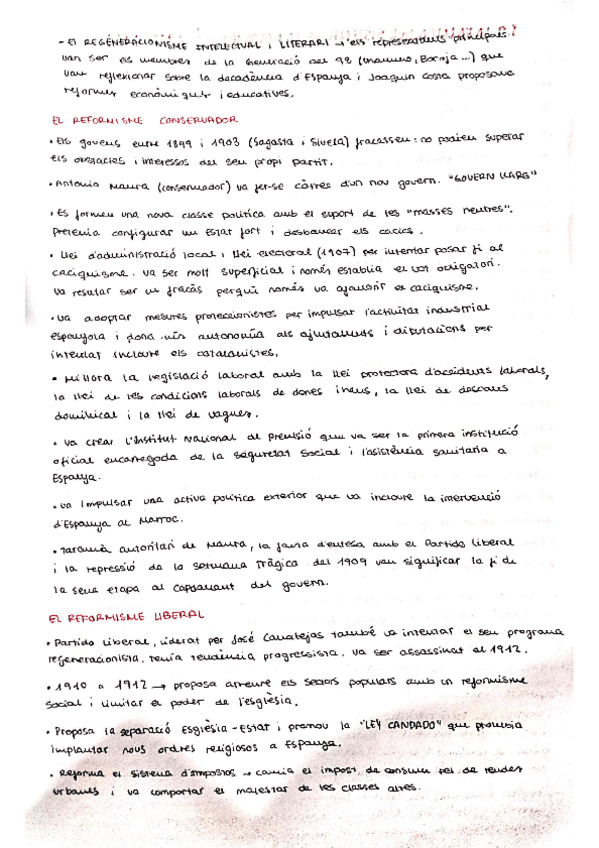 - El REGENERACIONISME INTELECTUAL i LITERARI → els representants principals
van ser els membres de la Generació del 98 (Unamuno, Baroja...) que
van reflexionar sobre la decadència d'Espanya i Joaquín Costa proposava
reformes econòmiques i educatives.
EL REFORMISME CONSERVADOR
• Els governs entre 1899 i 1903 (Sagasta i Silvela) fracassen: no podien superar
els obstacles i interessos del seu propi partit.
• Antonio Maura (conservador) va fer-se càrrec d'un nou govern. "GOVERN LLARG"
• Es formen una nova classe política amb el suport de les "masses neutres".
Pretenia configurar un Estat fort i desbancar els cacics.
• Llei d'administració local i llei electoral (1907) per intentar posar fi al
caciquisme. Va ser molt superficial i només establia el vot obligatori.
Va resultar ser un fracàs perquè només va afavorir el caciquisme.
• Va adoptar mesures proteccionistes per impulsar l'activitat industrial
espanyola i dona més autonomia als ajuntaments i diputacions per
intentar incloure els catalanistes.
• Millora la legislació laboral amb la llei protectora d'accidents laborals,
la llei de les condicions laborals de dones i nens, la llei de descans
dominical i la llei de vagues.
• Va crear l'Institut Nacional de Previsió que va ser la primera institució
oficial encarregada de la Seguretat Social i l'asistència sanitaria a
Espanya.
• Va impulsar una activa política exterior que va incloure la intervenció
d'Espanya al Marroc.
• Tarannà autoritari de Maura, la falta d'entesa amb el Partido Liberal
i la repressió de la Semana Tràgica del 1909 van significar la fi de
la seva etapa al capdavant del govern.
EL REFORMISME LIBERAL
• Partido Liberal, liderat per José Canalejas també va intentar el seu programa
regeneracionista. Tenia tendència progressista. Va ser assassinat al 1912.
• 1910 a 1912 → proposa atreure els sectors populars amb un reformisme
social i limitar el poder de l'església.
• Proposa la separació Església - Estat i promou la "LEY CANDADO" que prohibia
implantar nous ordres religiosos a Espanya.
• Reforma el sistema d'impostos → canvia el impost de consum pel de rendes
urbanes i va comportar el malestar de les classes altes.